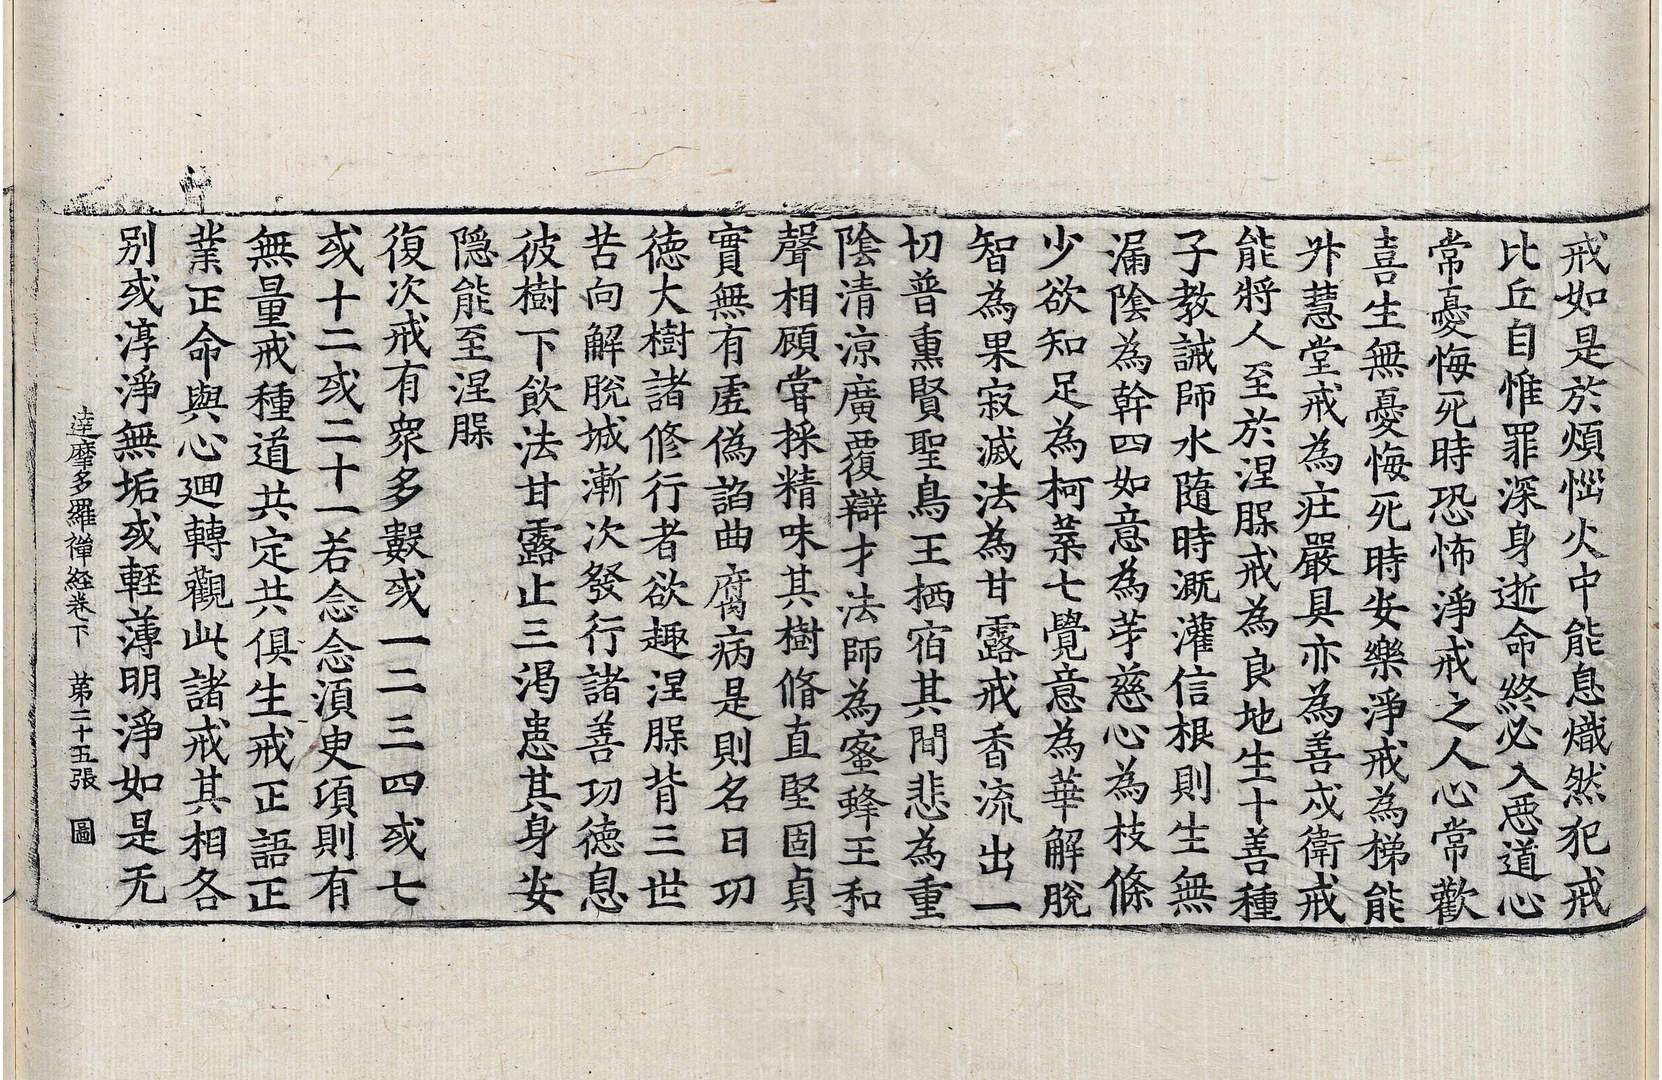 戒如是於煩惱火中能息熾然犯戒
比丘自惟罪深身逝命終必入惡道心
常憂悔死時恐怖淨戒之人心常歡
喜生無憂悔死時安樂淨戒為梯能
升慧堂戒為莊嚴具亦為善戍衛戒
能將人至於涅槃戒為良地生十善種
子教誡師水隨時溉灌信根則生無
漏陰為幹四如意為芽慈心為枝條
少欲知足為柯葉七覺意為華解脫
智為果寂滅法為甘露戒香流出一
切普熏賢聖鳥王栖宿其間悲為重
陰清涼廣覆辯才法師為蜜蜂王和
聲相顧甞採精味其樹脩直堅固貞
實無有虛偽諂曲腐病是則名曰功
德大樹諸修行者欲趣涅槃背三世
苦向解脫城漸次發行諸善功德息
彼樹下飲法甘露止三渴患其身安
隱能至涅槃
復次戒有眾多數或一二三四或七
或十二或二十一若念念須臾項則有
無量戒種道共定共俱生戒正語正
業正命與心迴轉觀此諸戒其相各
別或淳淨無垢或輕薄明淨如是无
達摩多羅禪経卷下 苐二十五張 圖